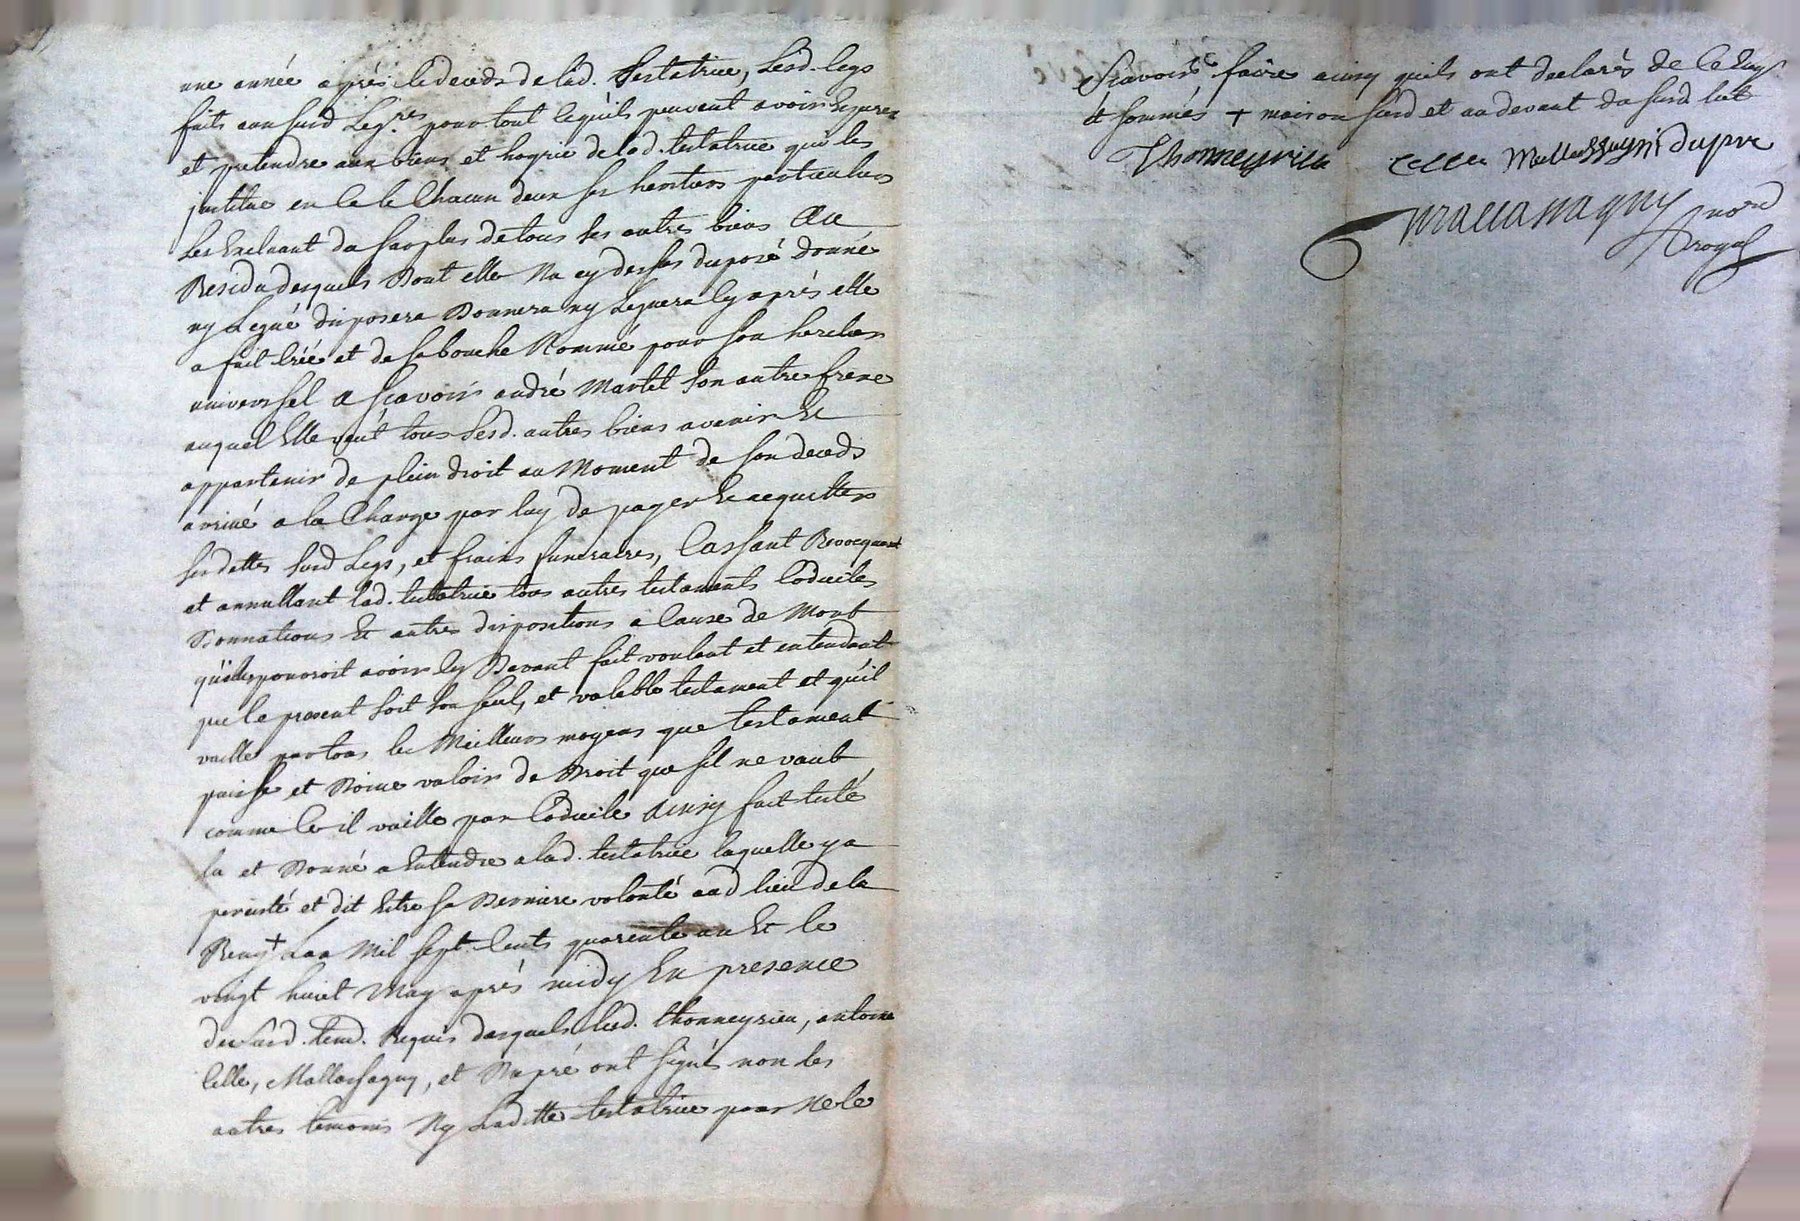 une année après le deceds de lad. testatrice, lesd. legs
faits aux susd leg.res pour tout ce qu'ils peuvent avoir
et pretendre aux biens et hoyrie de lad. testatrice qui les
institue en ce le chacun deux ses heritiers particuliers
les Excluant du surplus de tous ses autres biens Au
Residu desquels Dont elle Na cy dessus disposé donné
ny Legué disposera Donnera ny Leguera cy après elle
a fait créé et de sa bouche Nommé pour son heretier
universsel a scavoir andré Martel son autre frere
auquel Elle veut tous sesd. autres biens avenir Et
appartenir de plein droit au Moment de son deceds
arrivé a la Charge par luy de payer Et acquitter
ses dettes susd Legs, et fraix funeraires, Cassant Revocquant
et annullant lad. testatrice tous autres testaments Codiciles
Donnations Et autres dispositions a Cause de Mort
qu'elle pouroit avoir cy Devant fait voulant et entendant
que le present soit son seul, et valable testament et qu'il
vaille par tous les Meilleurs moyens que testament
puisse et Doive valoir de Droit que sil ne vaut
comme ce il vaille par Codicile Ainsy fait testé
lu et Donné a Entendre a lad. testatrice laquelle y a
persisté et dit Estre sa Derniere volonté aud lieu de la
+ Lan Mil sept Cents quarente un Et le
vingt huict May après midy En presence
des susd. tem. Requis desquels lesd. thonneyrieu, antoine
Celle, Mallassagny, et Dupré ont signés non les
autres temoins Ny Laditte testatrice pour Ne le
Scavoir faire ainsy quils ont declarés de ce Enquis
et sommés + maison susd et au devant du susd lict
Thonneyrieu Celle Mallassagny Dupré
Mallassagny no.re
royal